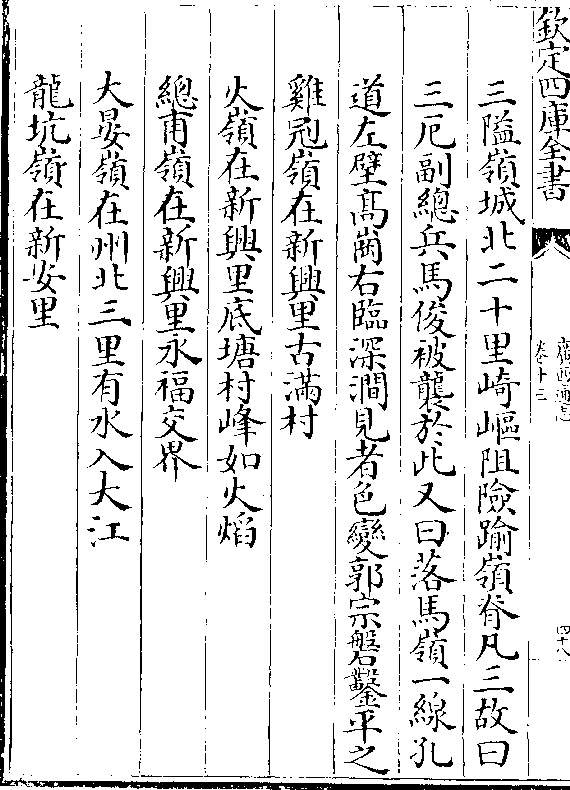 欽定四庫全書
廣西通志
卷十三
四十八
三隘嶺城北二十里崎嶇阻險踰嶺脊凡三故曰
三厄副總兵馬俊被襲於此又曰落馬嶺一線孔
道左壁髙崗右臨深澗見者色變郭宗磐鑿平之
雞冠嶺在新興里古滿村
火嶺在新興里底塘村峰如火焰
總甫嶺在新興里永福交界
大晏嶺在州北三里有水入大江
龍坑嶺在新安里